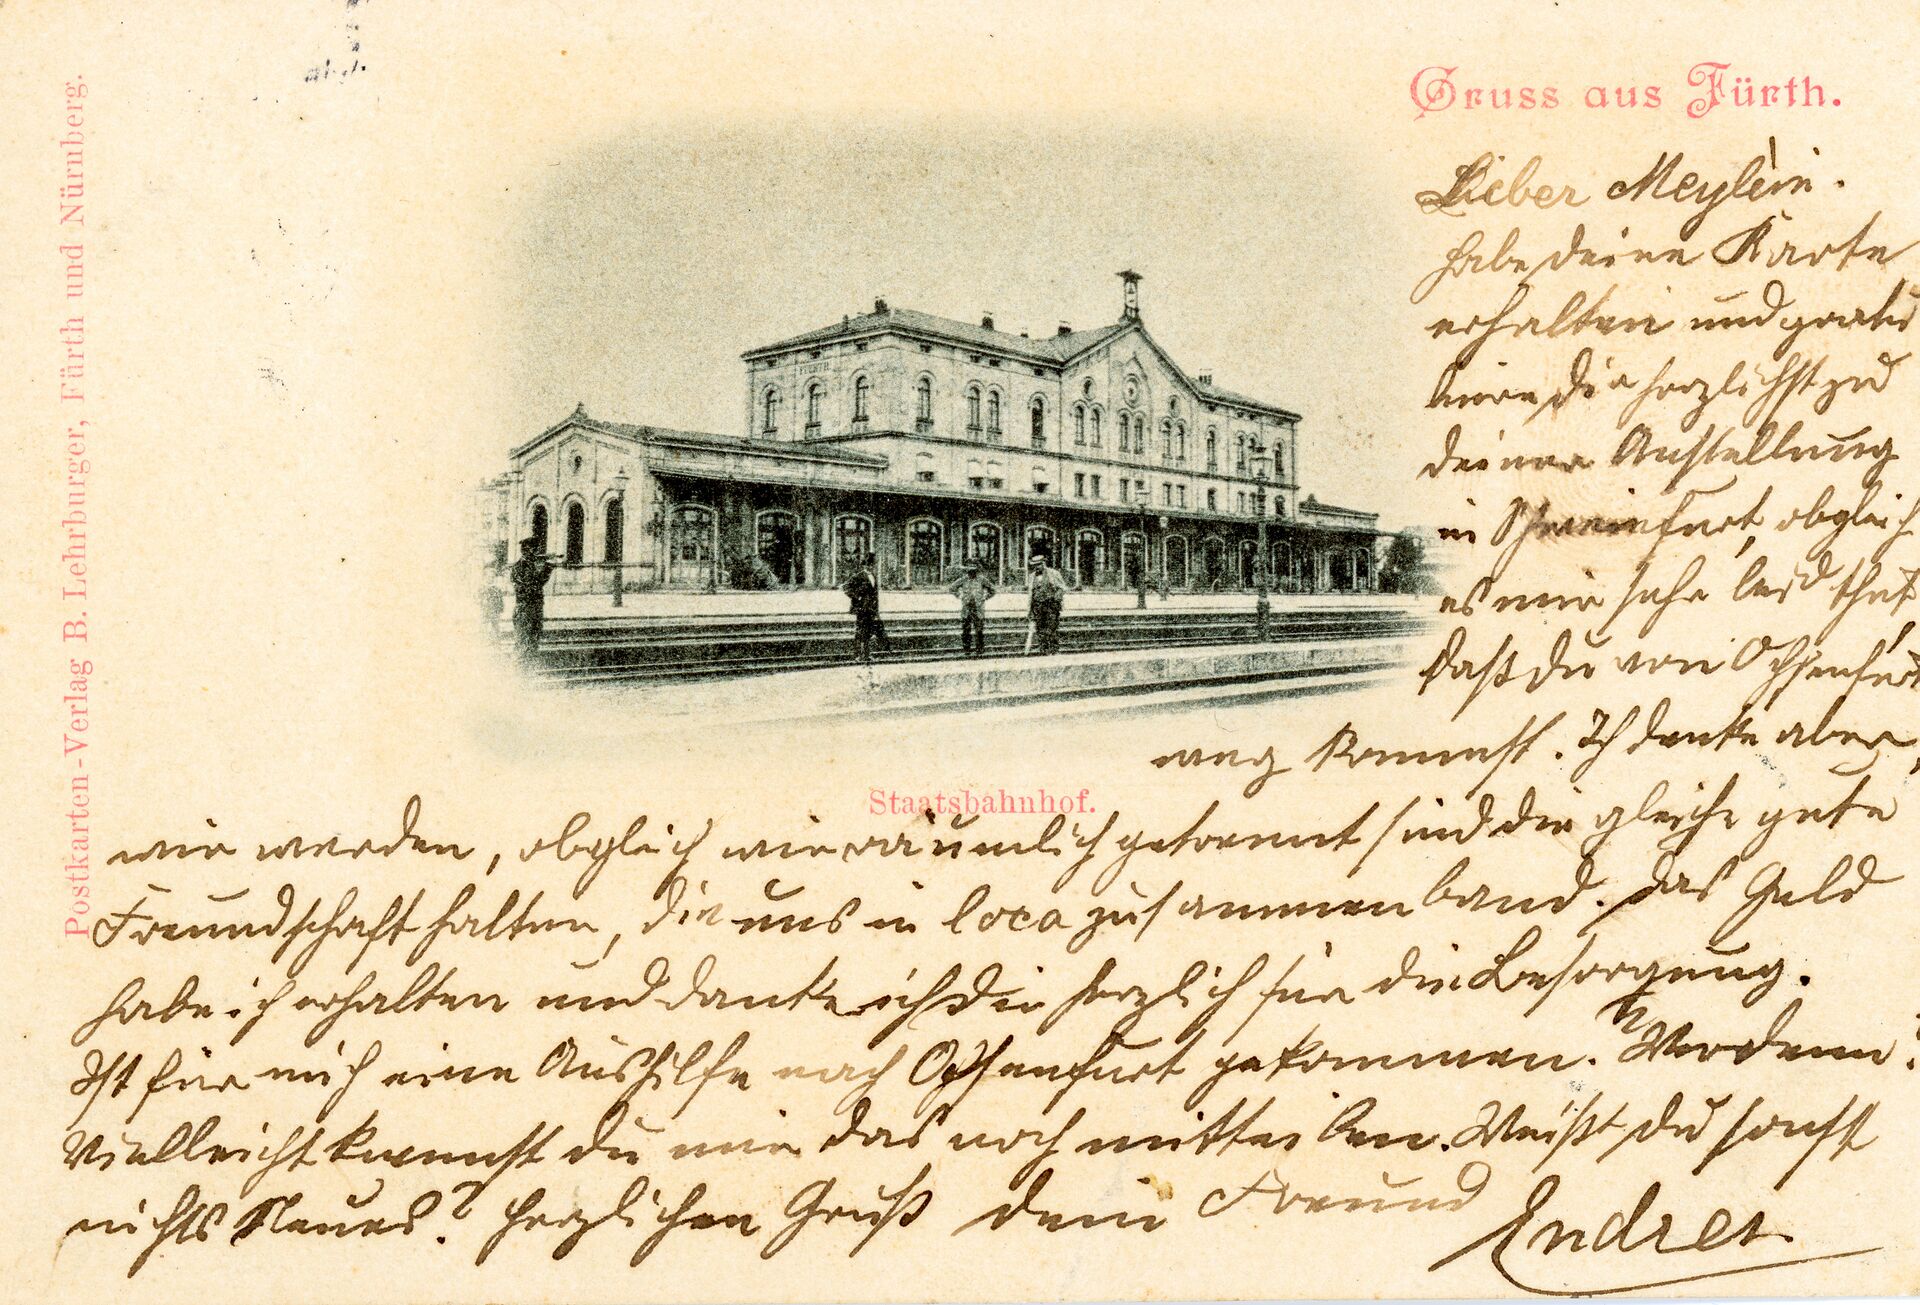 Gruss aus Fürth.
Postkarten-Verlag B. Lehrburger, Fürth und Nürnberg.
Lieber Meylein.
habe deine Karte
erhalten und gratu
liere dir herzlichst zu
deiner Anstellung
in Schweinfurt, obgleich
es mir sehr leid thut
daß du von Ochsenfurt
weg kommst. Ich denke aber,
Staatsbahnhof.
wir werden, obgleich wir räumlich getrennt sind die gleiche gute
Freundschaft halten, die uns in loco zusammen band. Das Geld
habe ich erhalten und danke ich dir herzlich für die Besorgung.
Ist für mich eine Aushilfe nach Ochsenfurt gekommen. Wer denn?
Vielleicht kannst du mir das noch mitteilen. Weißt du sonst
nichts Neues? Herzlichen Gruß dein Freund
Endres